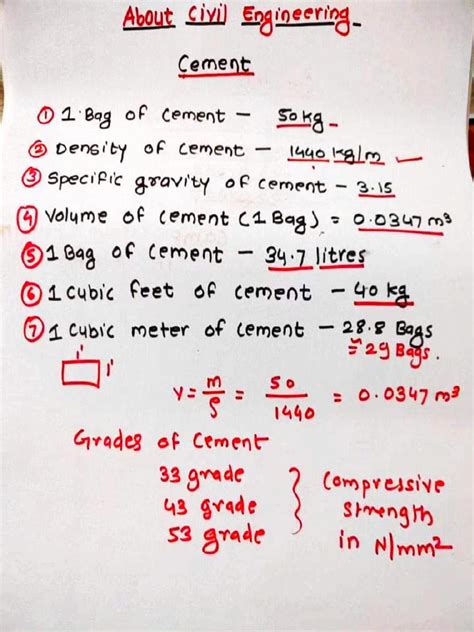 About Civil Engineering
Cement
① 1 Bag of cement – 50kg
② Density of cement – 1440 kg/m
③ Specific gravity of cement – 3.15
④ Volume of cement (1 Bag) = 0.0347 m³
⑤ 1 Bag of cement – 34.7 litres
⑥ 1 cubic feet of cement – 40 kg
⑦ 1 cubic meter of cement – 28.8 Bags
≈ 29 Bags.
1'
1'
V = m/ρ = 50/1440 = 0.0347 m³
Grades of Cement
33 grade
43 grade
53 grade
Compressive
strength
in N/mm²